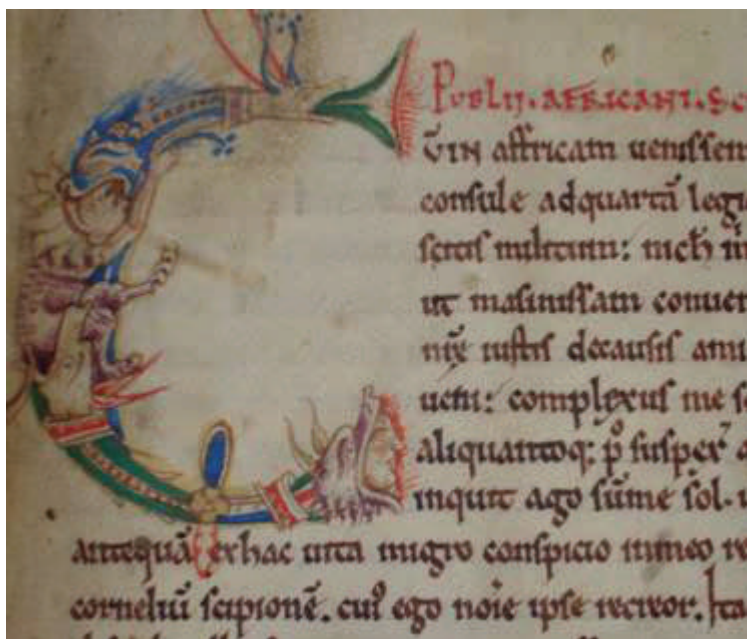 PUBLII. AFFRICANI. SC
C
ŪIN affricam uenissem
consule adquartā legi
scitis militum: nich m
ut masinissam conuen
nr̄e iustis decausis ami
ueni: complexus me se
aliquantoq; p̄ suspex̄ a
inquit ago sūme sol. u
antequā exhac uita migro conspicio inmeo re
corneliū scipionē. cuiꝰ ego noīe ipse recreor. Ita